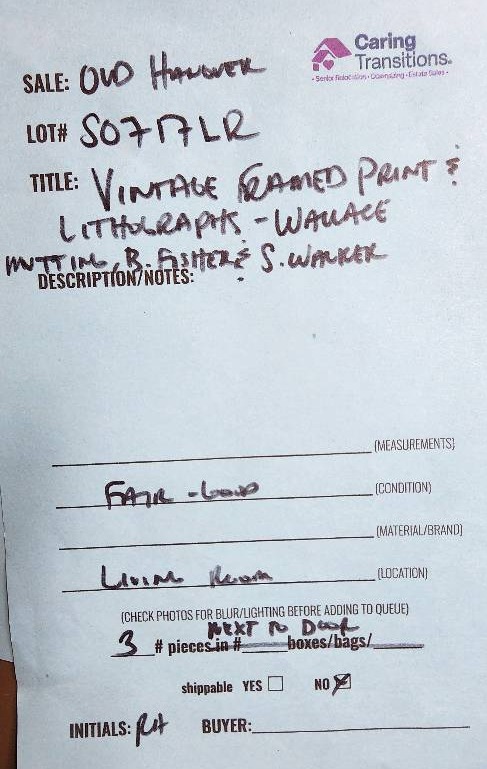 Caring
Transitions.
• Senior Relocation • Downsizing • Estate Sales •
SALE: OLD HANOVER
LOT# S0717LR
TITLE: VINTAGE FRAMED PRINT &
LITHOGRAPHS - WALLACE
NUTTING, B. FISHER & S. WALKER
DESCRIPTION/NOTES:
(MEASUREMENTS)
FAIR - GOOD (CONDITION)
(MATERIAL/BRAND)
LIVING ROOM (LOCATION)
(CHECK PHOTOS FOR BLUR/LIGHTING BEFORE ADDING TO QUEUE)
NEXT TO DOOR
3 # pieces in # boxes/bags/
shippable YES ☐ NO ☒
INITIALS: RH BUYER: